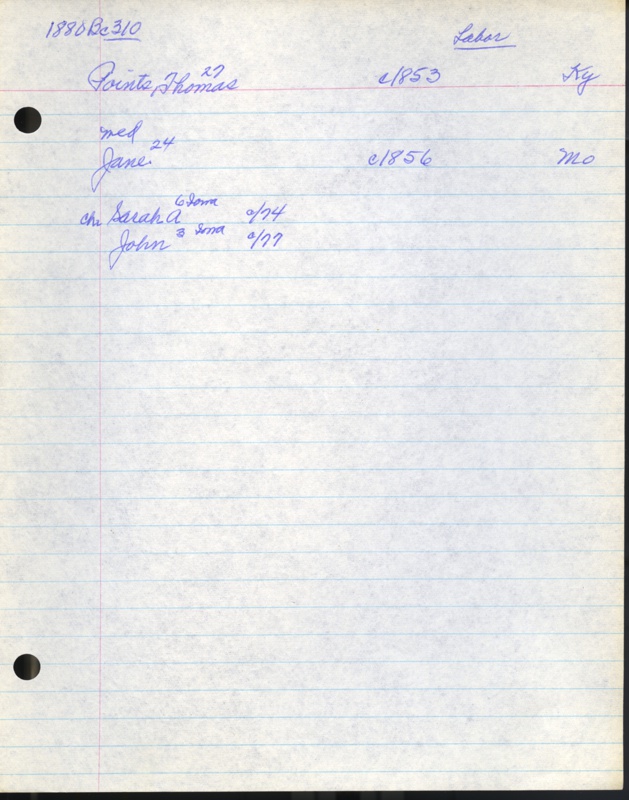 1880 Bc 310 Labor
Points, Thomas 27 c/1853 Ky
med
Jane 24 c/1856 Mo
chr Sarah A 6 Ioma c/74
John 3 Ioma c/77